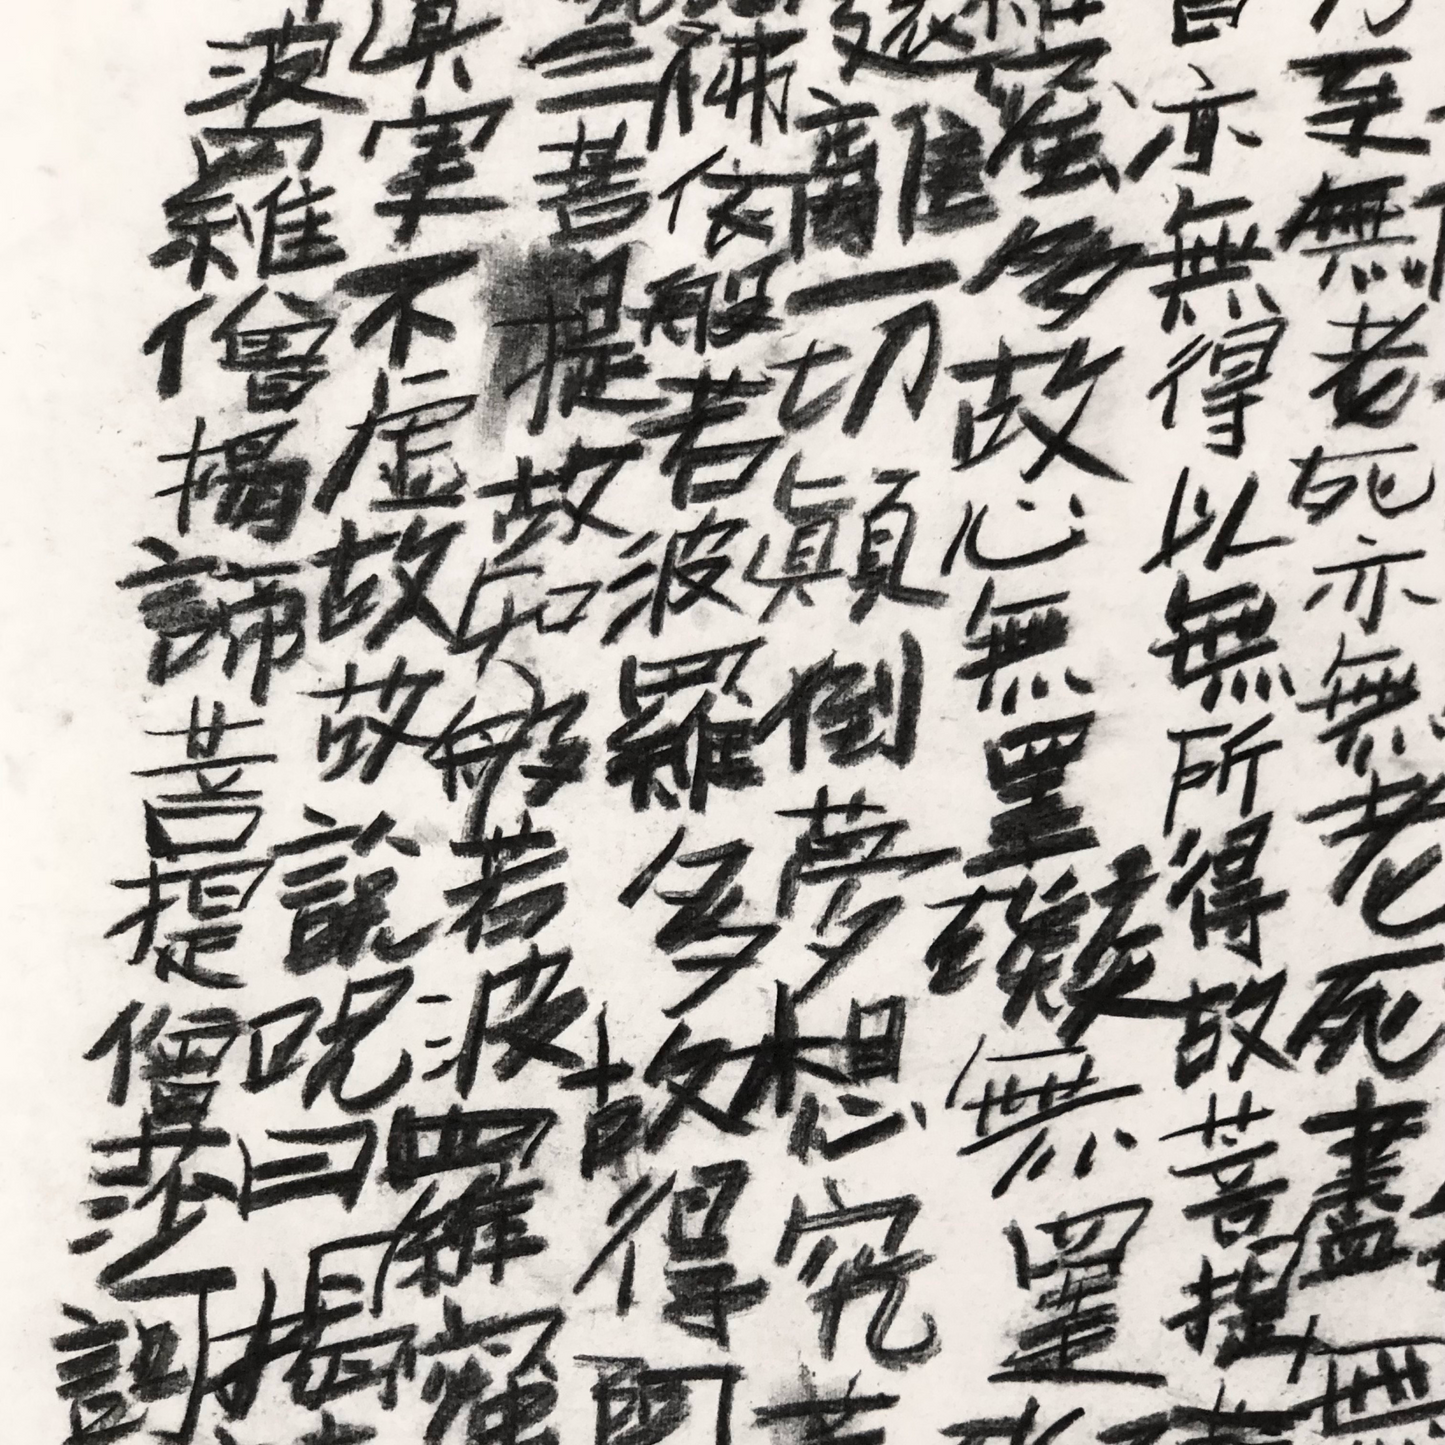 至無老死亦無老死盡
亦無得以無所得故菩提
蜜多故心無罣礙無罣
遠離一切顛倒夢想究
佛依般若波羅多故得
三菩提故知般若波羅蜜
真実不虚故故説呪曰掲
波羅僧掲諦菩提僧莎訶